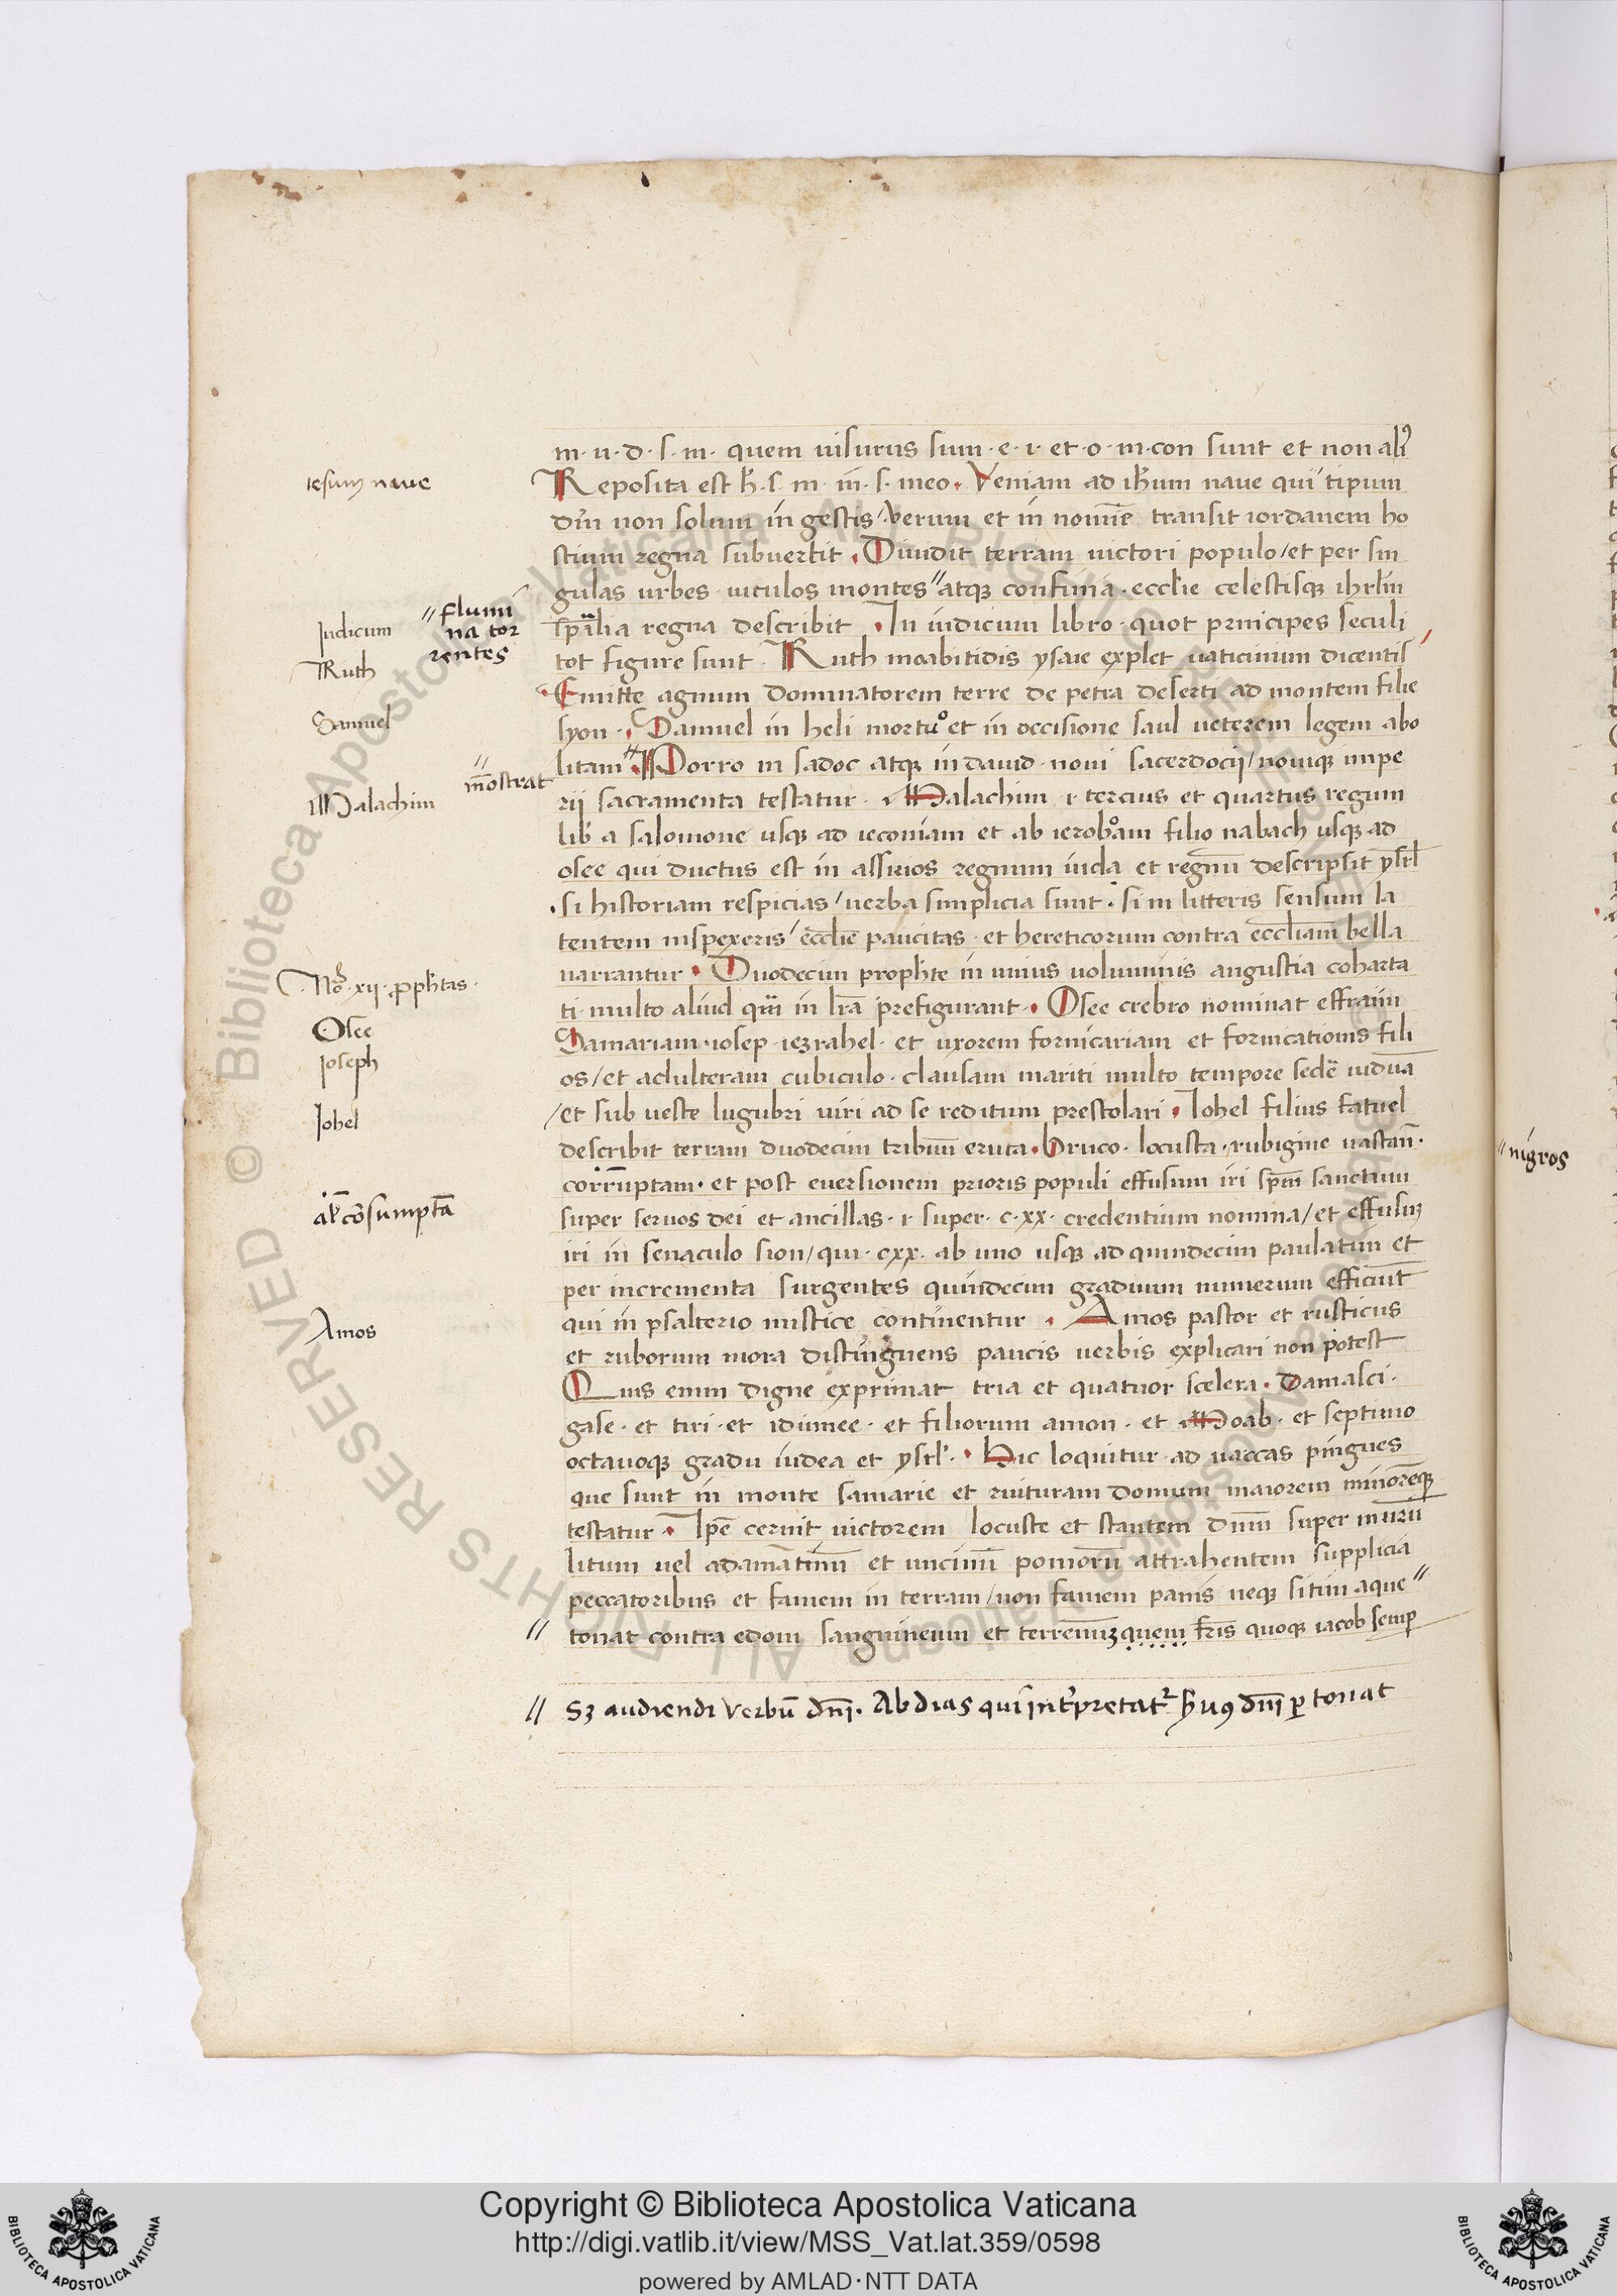 m·u·d·s·m· quem uisurus sum·e·i·et·o·m·con sunt et non aliꝰ
Reposita est h̄·s·m·in·s·meo. Veniam ad ih̄um naue qui tipum
dn̄i non solum in gestis/verum et in nomīe transit iordanem ho
stium regna subvertit. Diuidit terram uictori populo/et per sin
gulas urbes uiculos montes〃atqꝫ confinia·eccl̄ie celestisqꝫ ihrl̄m
sp̄alia regna describit. In iudicum libro·quot principes seculi
tot figure sunt. Ruth moabitidis ysaie explet uaticinium dicentis
Emitte agnum dominatorem terre de petra deserti ad montem filie
syon. Samuel in heli mortuo et in occisione saul ueterem legem abo
litam〃Porro in sadoc atqꝫ in dauid·noui sacerdocij/nouiqꝫ impe
rij sacramenta testatur. Malachim·i·tercius et quartus regum
lib̄ a salomone usqꝫ ad ieconiam et ab ieroboam filio nabach usqꝫ ad
osee qui ductus est in assirios regnum iuda et regnū descripsit ysrl̄
.si historiam respicias/uerba simplicia sunt. si in litteris sensum la
tentem inspexeris/eccl̄ie paucitas·et hereticorum contra eccl̄iam bella
narrantur. Duodecim proph̄te in unius uoluminis angustia coharta
ti·multo aliud qm̄ in lr̄a prefigurant. Osee crebro nominat effraim
Samariam·iosep·iezrahel·et uxorem fornicariam et fornicationis fili
os/et adulteram cubiculo·clausam mariti multo tempore sedē uiduā
/et sub ueste lugubri uiri ad se reditum prestolari. Iohel filius fatuel
describit terram duodecim tribuum eruca. Bruco·locusta·rubigine uastan̄·
corruptam·et post euersionem prioris populi effusum iri spm̄ sanctum
super seruos dei et ancillas·i·super·c·xx·credentium nomina/et effusuꝫ
iri in senaculo sion/qui·cxx·ab uno usqꝫ ad quindecim paulatim et
per incrementa surgentes quindecim graduum numerum efficiūt
qui in psalterio mistice continentur. Amos pastor et rusticus
et ruborum mora distinguens paucis uerbis explicari non potest
Quis enim digne exprimat tria et quatuor scelera. Damasci.
gase·et tiri·et idumee·et filiorum amon·et Moab·et septimo
octauoqꝫ gradu iudea et ysrl̄. Hic loquitur ad uaccas pingues
que sunt in monte samarie et ruituram domum maiorem minoremqꝫ
testatur. Ip̄e cernit uictorem locuste et stantem dn̄m super murū
litum uel adamātinū et uncinū pomorū attrahentem supplicia
peccatoribus et famem in terram/non famem panis neqꝫ sitim aque〃
〃 tonat contra edom sanguineum et terrenuꝫ quem fr̄is quoqꝫ iacob semꝑ
〃 sꝫ audiendi verbū dn̄i. Abdias qui int̄pretatᷣ s̄uꝰ dn̄i ꝑ tonat
iesum naue
〃flumi
na tor
rentes
Iudicum
Ruth
Samuel
〃
mōstrat
Malachim
No·xij·ꝓph̄tas·
Osee
Ioseph
Iohel
al̄ cōsumptā
Amos
〃nigros
Copyright © Biblioteca Apostolica Vaticana
http://digi.vatlib.it/view/MSS_Vat.lat.359/0598
powered by AMLAD·NTT DATA
BIBLIOTECA APOSTOLICA VATICANA
BIBLIOTECA APOSTOLICA VATICANA